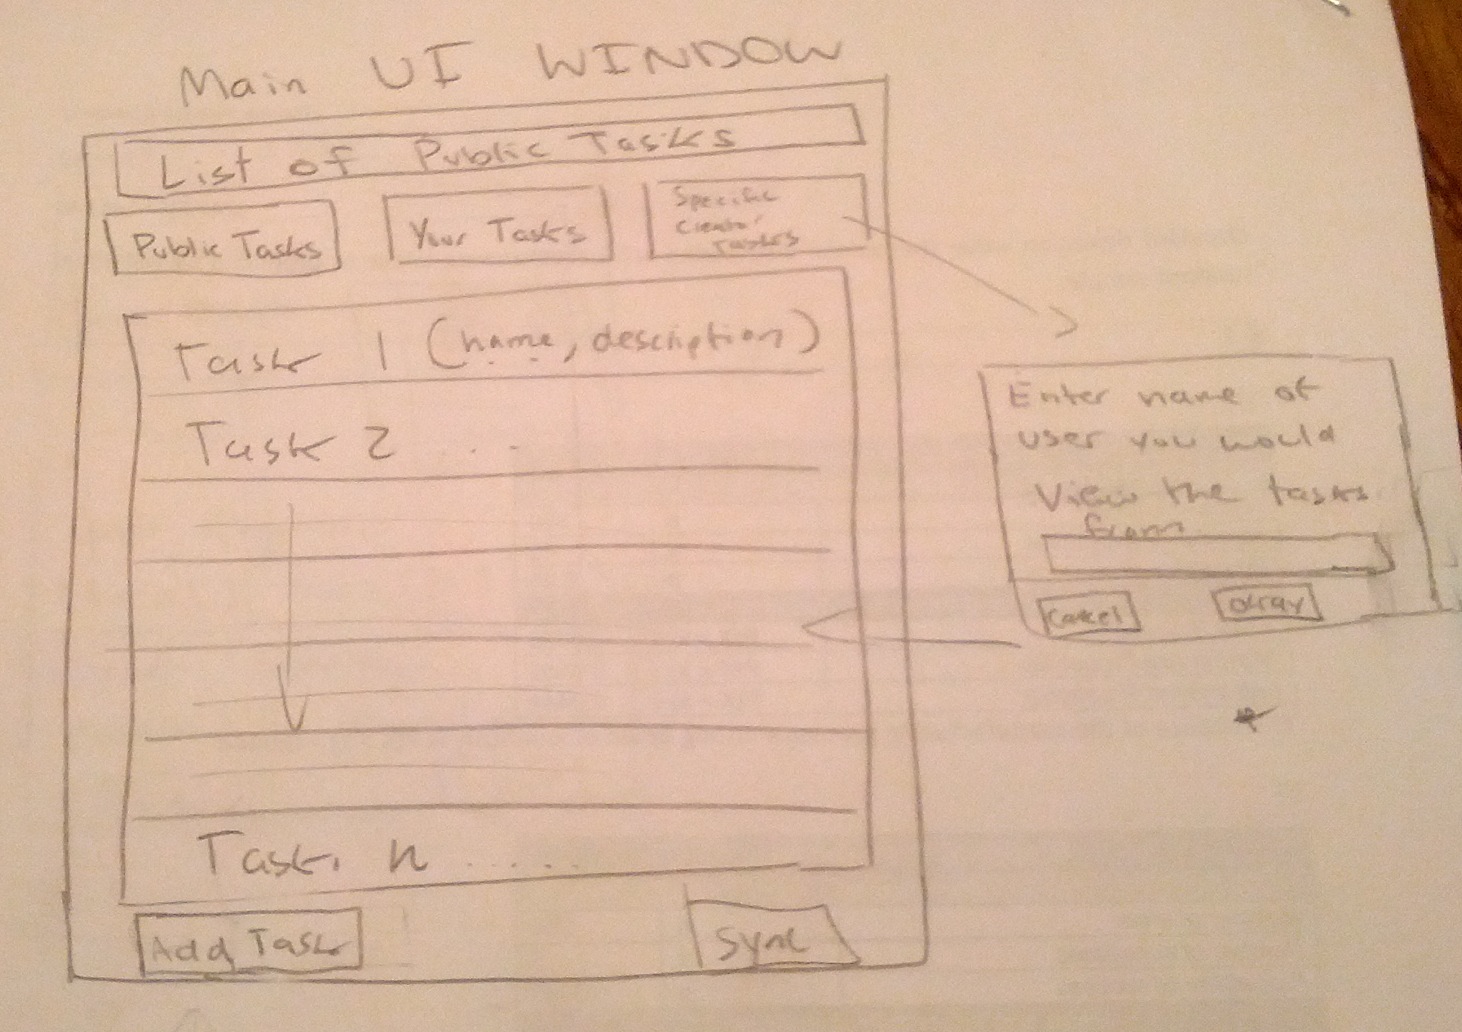 Main UI WINDOW
List of Public Tasks
Public Tasks
Your Tasks
Specific
Creator
Tasks
Task 1 (name, description)
Task 2 ...
Task n .....
Add Task
Sync
Enter name of
user you would
View the tasks
from
Cancel
Okay